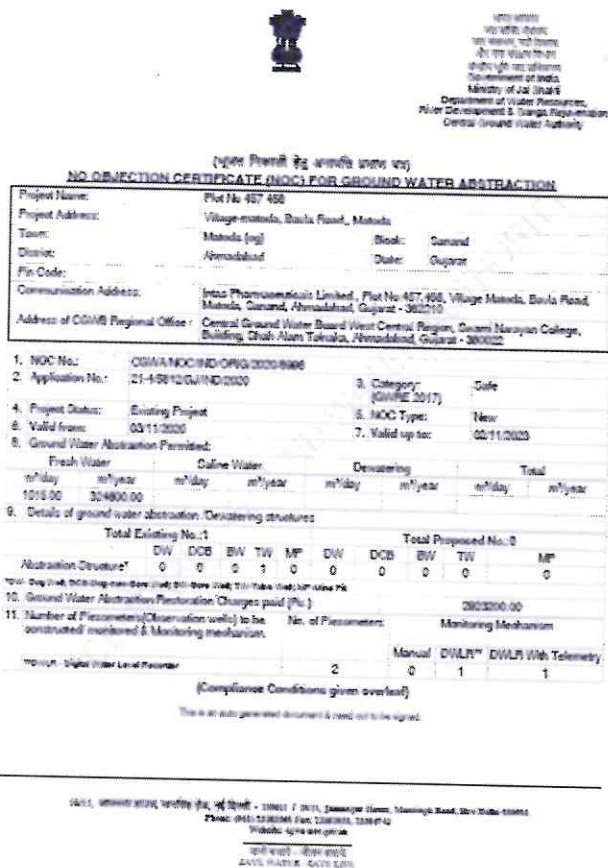 भारत सरकार
जल शक्ति मंत्रालय
Government of India
Ministry of Jal Shakti
Department of Water Resources,
River Development & Ganga Rejuvenation
Central Ground Water Authority
NO OBJECTION CERTIFICATE (NOC) FOR GROUND WATER ABSTRACTION
Project Name: Plot No 457 458
Project Address: Village-matoda, Bavla Road,, Matoda
Town: Matoda (og) Block: Sanand
District: Ahmadabad State: Gujarat
Pin Code:
Communication Address: Intas Pharmaceuticals Limited, Plot No 457,458, Village Matoda, Bavla Road, Matoda, Sanand, Ahmadabad, Gujarat - 382210
Address of CGWB Regional Office : Central Ground Water Board West Central Region, Swami Narayan College, Building, Shah Alam Tolnaka, Ahmadabad, Gujarat - 380022
1. NOC No.: CGWA/NOC/IND/ORIG/2020/8966
2. Application No.: 21-4/5812/GJ/IND/2020 3. Category: (GWRE 2017) Safe
4. Project Status: Existing Project 5. NOC Type: New
6. Valid from: 03/11/2020 7. Valid up to: 02/11/2023
8. Ground Water Abstraction Permitted:
Fresh Water Saline Water Dewatering Total
m³/day m³/year m³/day m³/year m³/day m³/year m³/day m³/year
1015.00 324800.00
9. Details of ground water abstraction /Dewatering structures
Total Existing No.:1 Total Proposed No.:0
DW DCB BW TW MP DW DCB BW TW MP
Abstraction Structure* 0 0 0 1 0 0 0 0 0 0
*DW- Dug Well; DCB-Dug-cum-Bore Well; BW-Bore Well; TW-Tube Well; MP-Mine Pit
10. Ground Water Abstraction/Restoration Charges paid (Rs.): 2923200.00
11. Number of Piezometers(Observation wells) to be constructed/ monitored & Monitoring mechanism. No. of Piezometers Monitoring Mechanism
Manual DWLR** DWLR With Telemetry
**DWLR - Digital Water Level Recorder 2 0 1 1
(Compliance Conditions given overleaf)
This is an auto generated document & need not to be signed.
SAVE WATER - SAVE LIFE